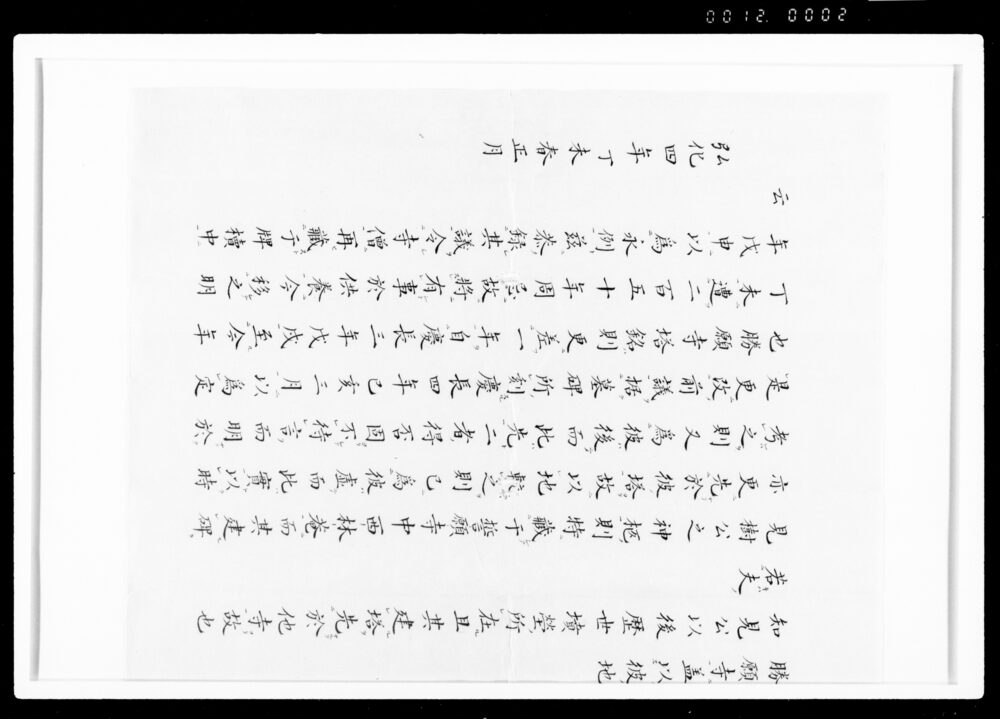 勝願寺盖以彼地
知見公以後歴世墳塋所在且其建塔先於他寺故也
若夫
見樹公之神柩則特藏于誓願寺中西林菴而其建碑
亦更先於彼塔故以地較之則已為彼虚而此實以時
考之則又為彼後而此先二者得否固不待言而明於
是更改前議据墓碑所刻慶長四年己亥三月以為定
也勝願寺塔銘則更差一年自慶長三年戊戌至今年
丁未遭二百五十年周忌故將有事於供養今移之明
年戊申以為永例兹恭録其議令寺僧再藏于牌櫝中
云
弘化四年丁未春正月
0012 0002